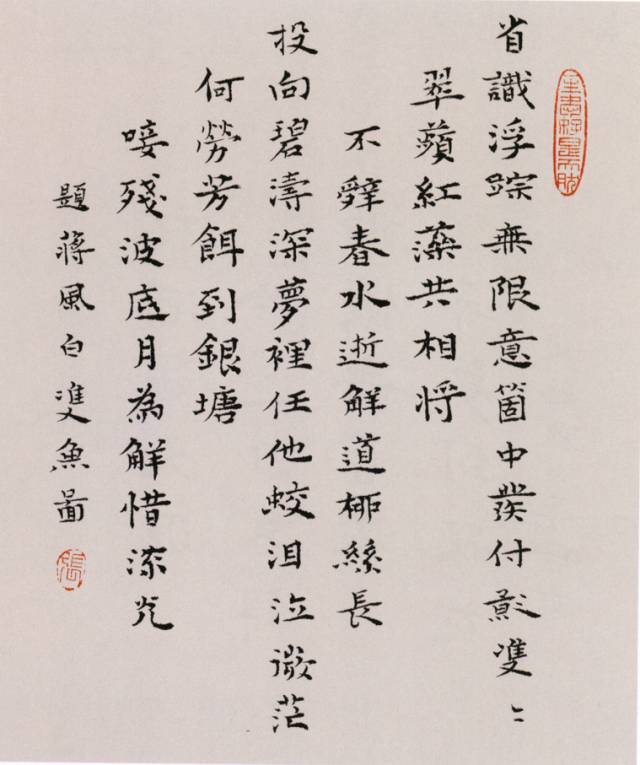 省識浮踪無限意箇中發付影雙〻
翠蘋紅藻共相將
不辭春水逝解道柳絲長
投向碧濤深夢裡任他蛟泪泣微茫
何勞芳餌到銀塘
唼殘波底月為解惜流光
題蔣風白雙魚圖
張